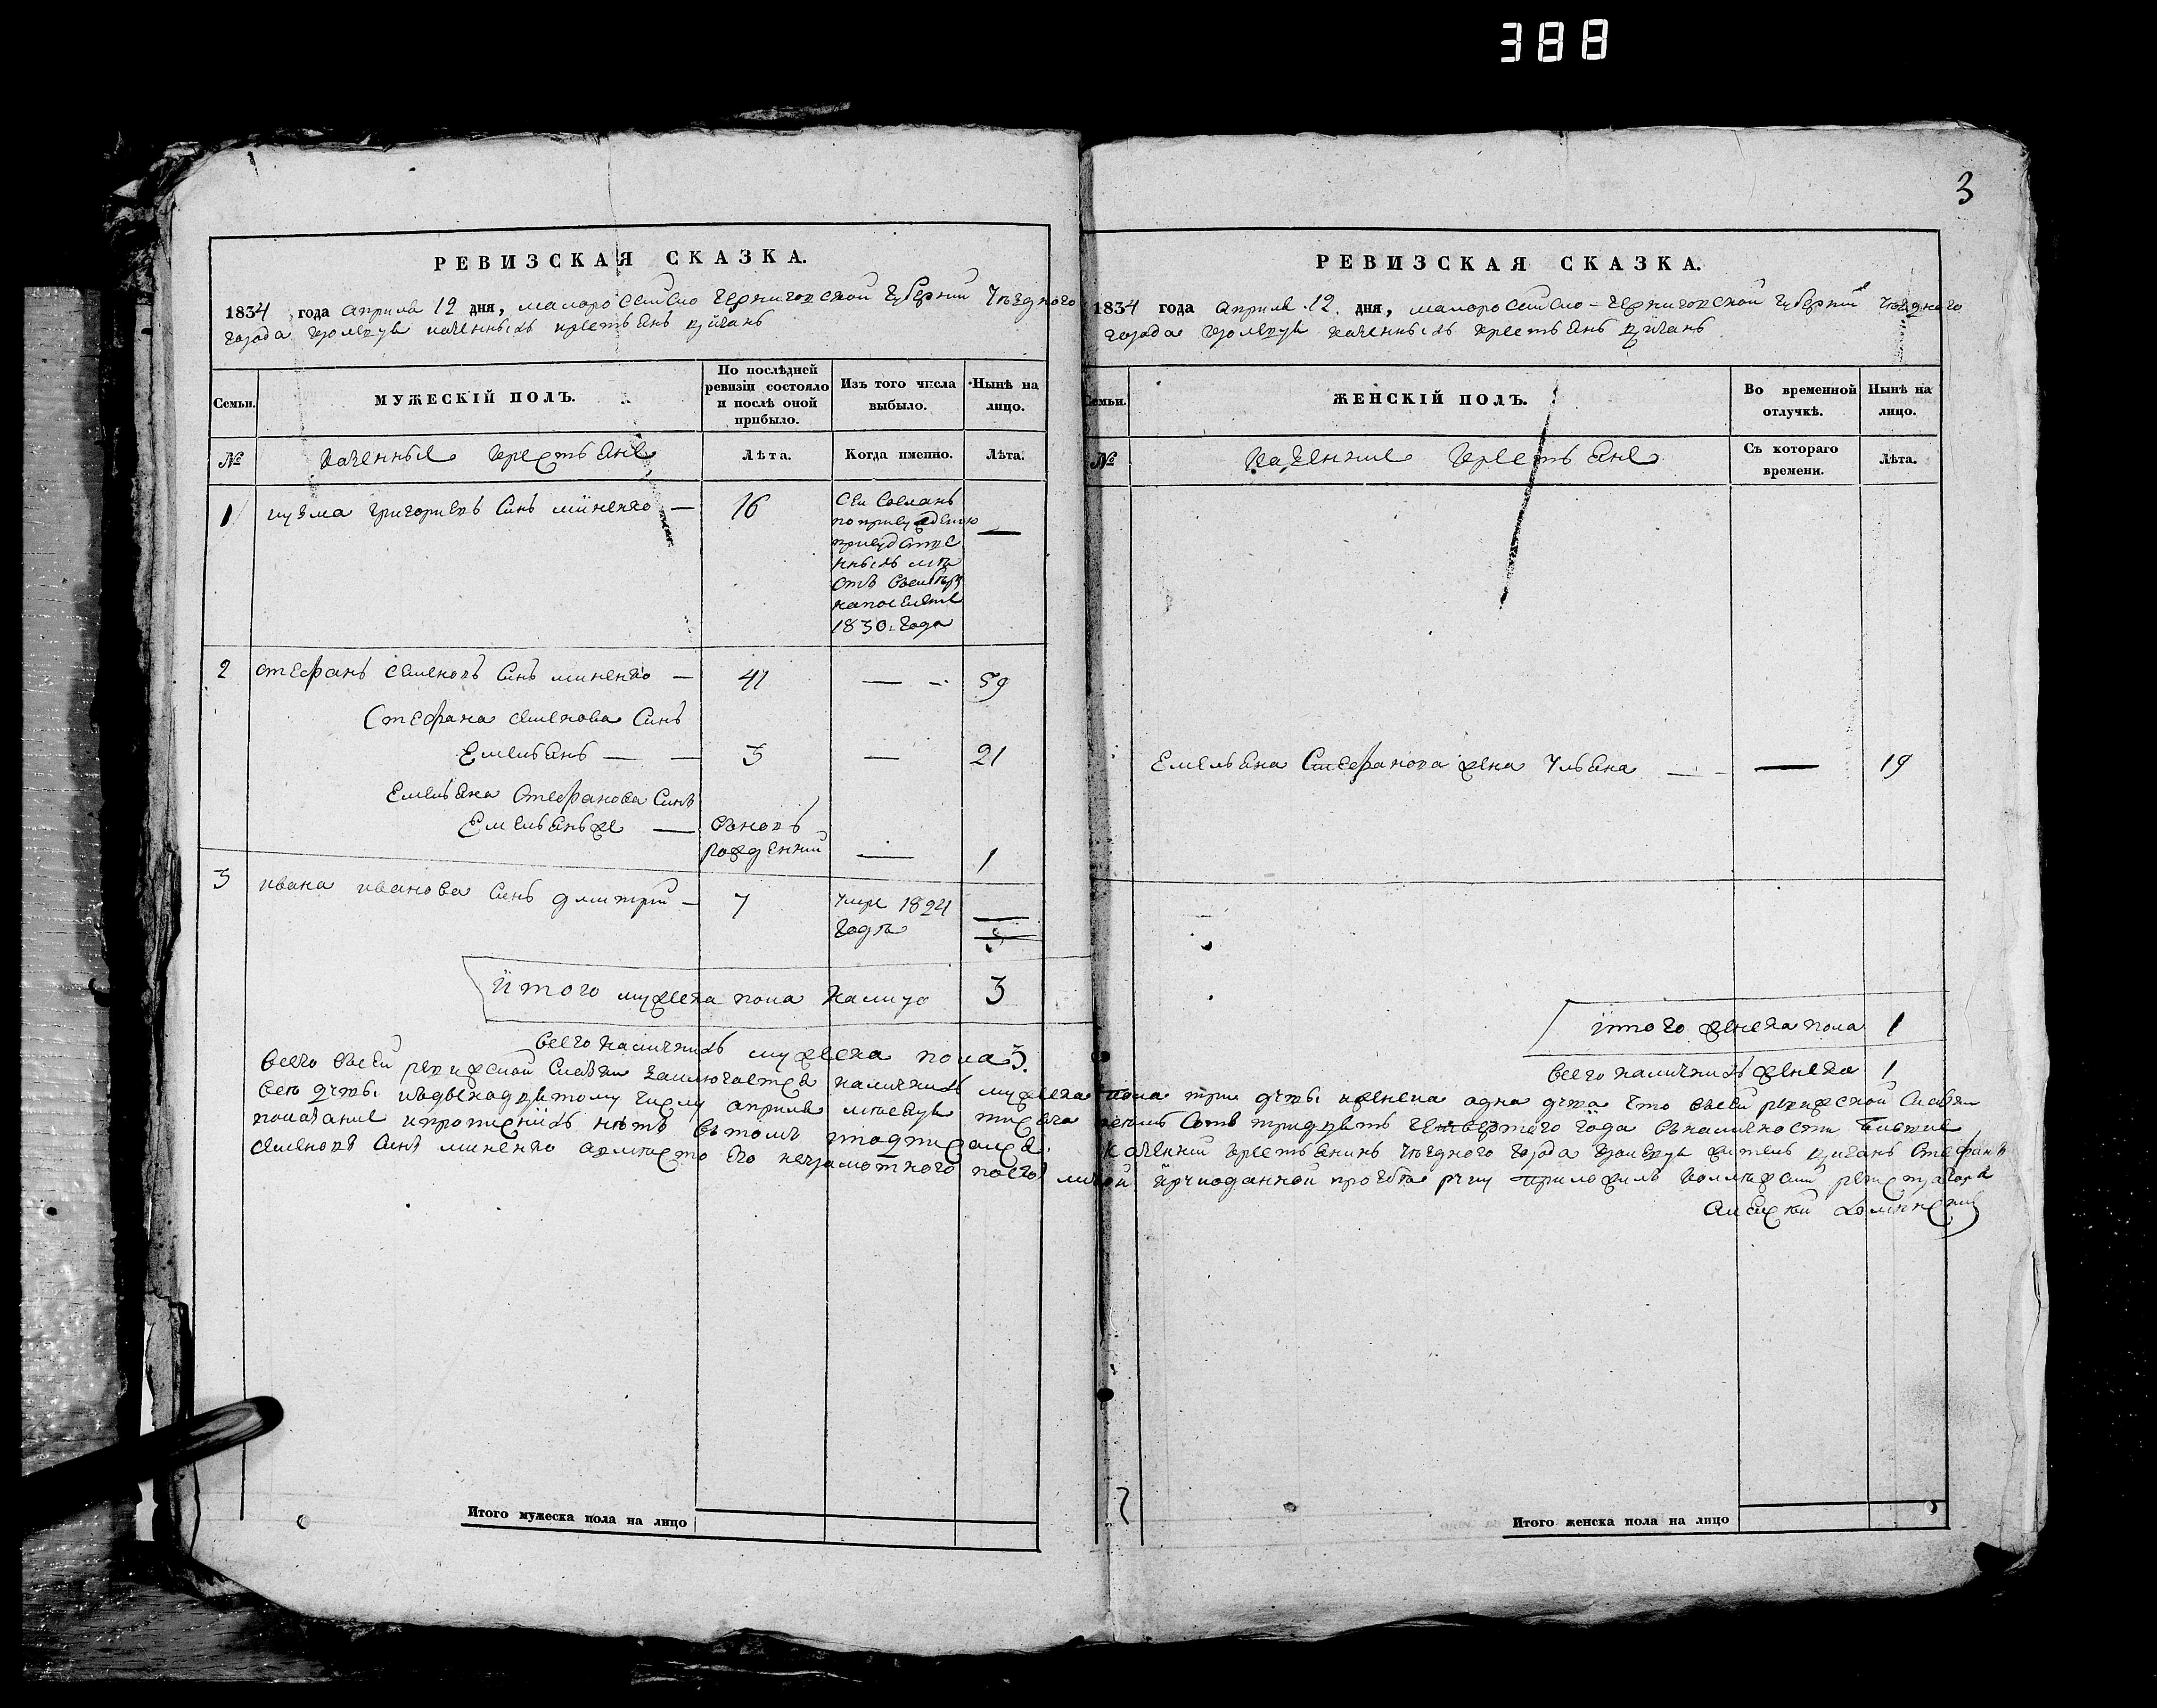 388
3
РЕВИЗСКАЯ СКАЗКА.
1834 года априля 12 дня, малоросейско Черниговской Губернии Уѣздного
города кролевца казенныхъ крестьянъ цыганъ
Семьи.
МУЖЕСКІЙ ПОЛЪ.
По послѣдней ревизіи состояло и послѣ оной прибыло.
Изъ того числа выбыло.
Нынѣ на лицо.
№
казенные крестьяне
Лѣта.
Когда именно.
Лѣта.
1 кузма григориевъ синъ миненко — 16
Сей сосланъ
1830. года
2 стефанъ семеновъ синъ миненко — 41 — 59
Стефана семенова синъ
Емельянъ — — 3 — 21
Емельяна Стефанова Синъ
Емельянъ же — вновь
рожденний — 1
3 ивана иванова синъ дмитрий — 7 умре 1824
года
итого мужеска пола налицо 3
всего наличнихъ мужеска пола 3.
Итого мужеска пола на лицо
РЕВИЗСКАЯ СКАЗКА.
1834 года априля 12. дня, малоросейско-Черниговской Губернии Уѣздного
города кролевца казенныхъ крестьянъ цыганъ
Семьи.
ЖЕНСКІЙ ПОЛЪ.
Во временной отлучкѣ.
Нынѣ на лицо.
№
казенние крестьяне
Съ котораго времени.
Лѣта.
Емельяна Стефанова жена Ульяна — — — 19
итого женска пола 1
всего наличнихъ женска 1
всего всей ревижской сказки заключается наличнихъ мужеска пола три души иженска одна душа что всей ревижской сказки
априля месяца тисяча восемь сотъ тридцать четвертого года
семеновъ синъ миненко
казенний крестьянинъ уѣздного города кролевца житель цыганъ Стефанъ
его неграмотного
руку приложилъ коллежский регистраторъ
Алексей
Итого женска пола на лицо